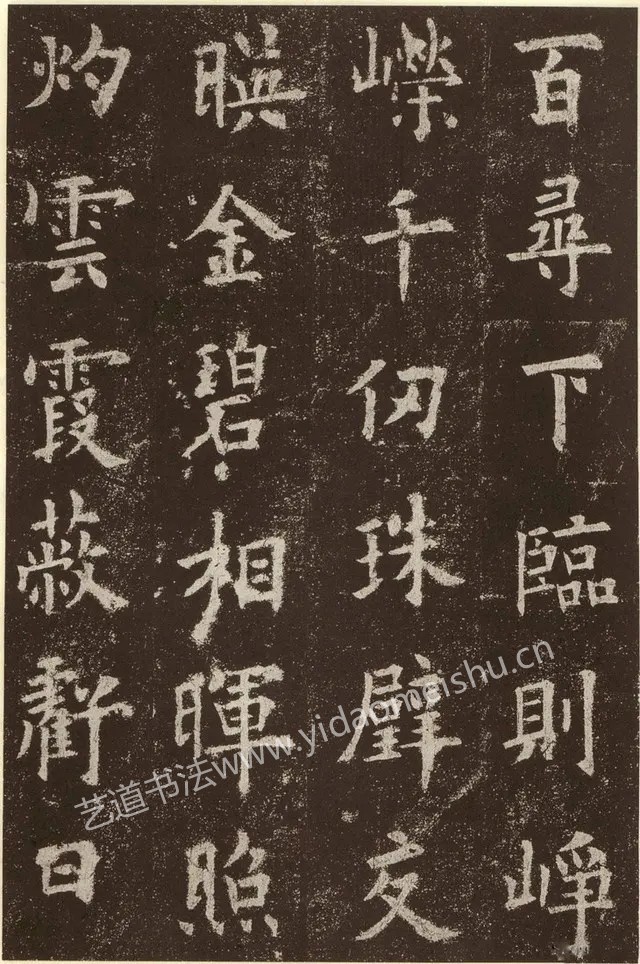 百尋下臨則崢
嶸千仞珠璧交
暎金碧相暉照
灼雲霞蔽虧日
艺道书法www.yidaomeishu.cn